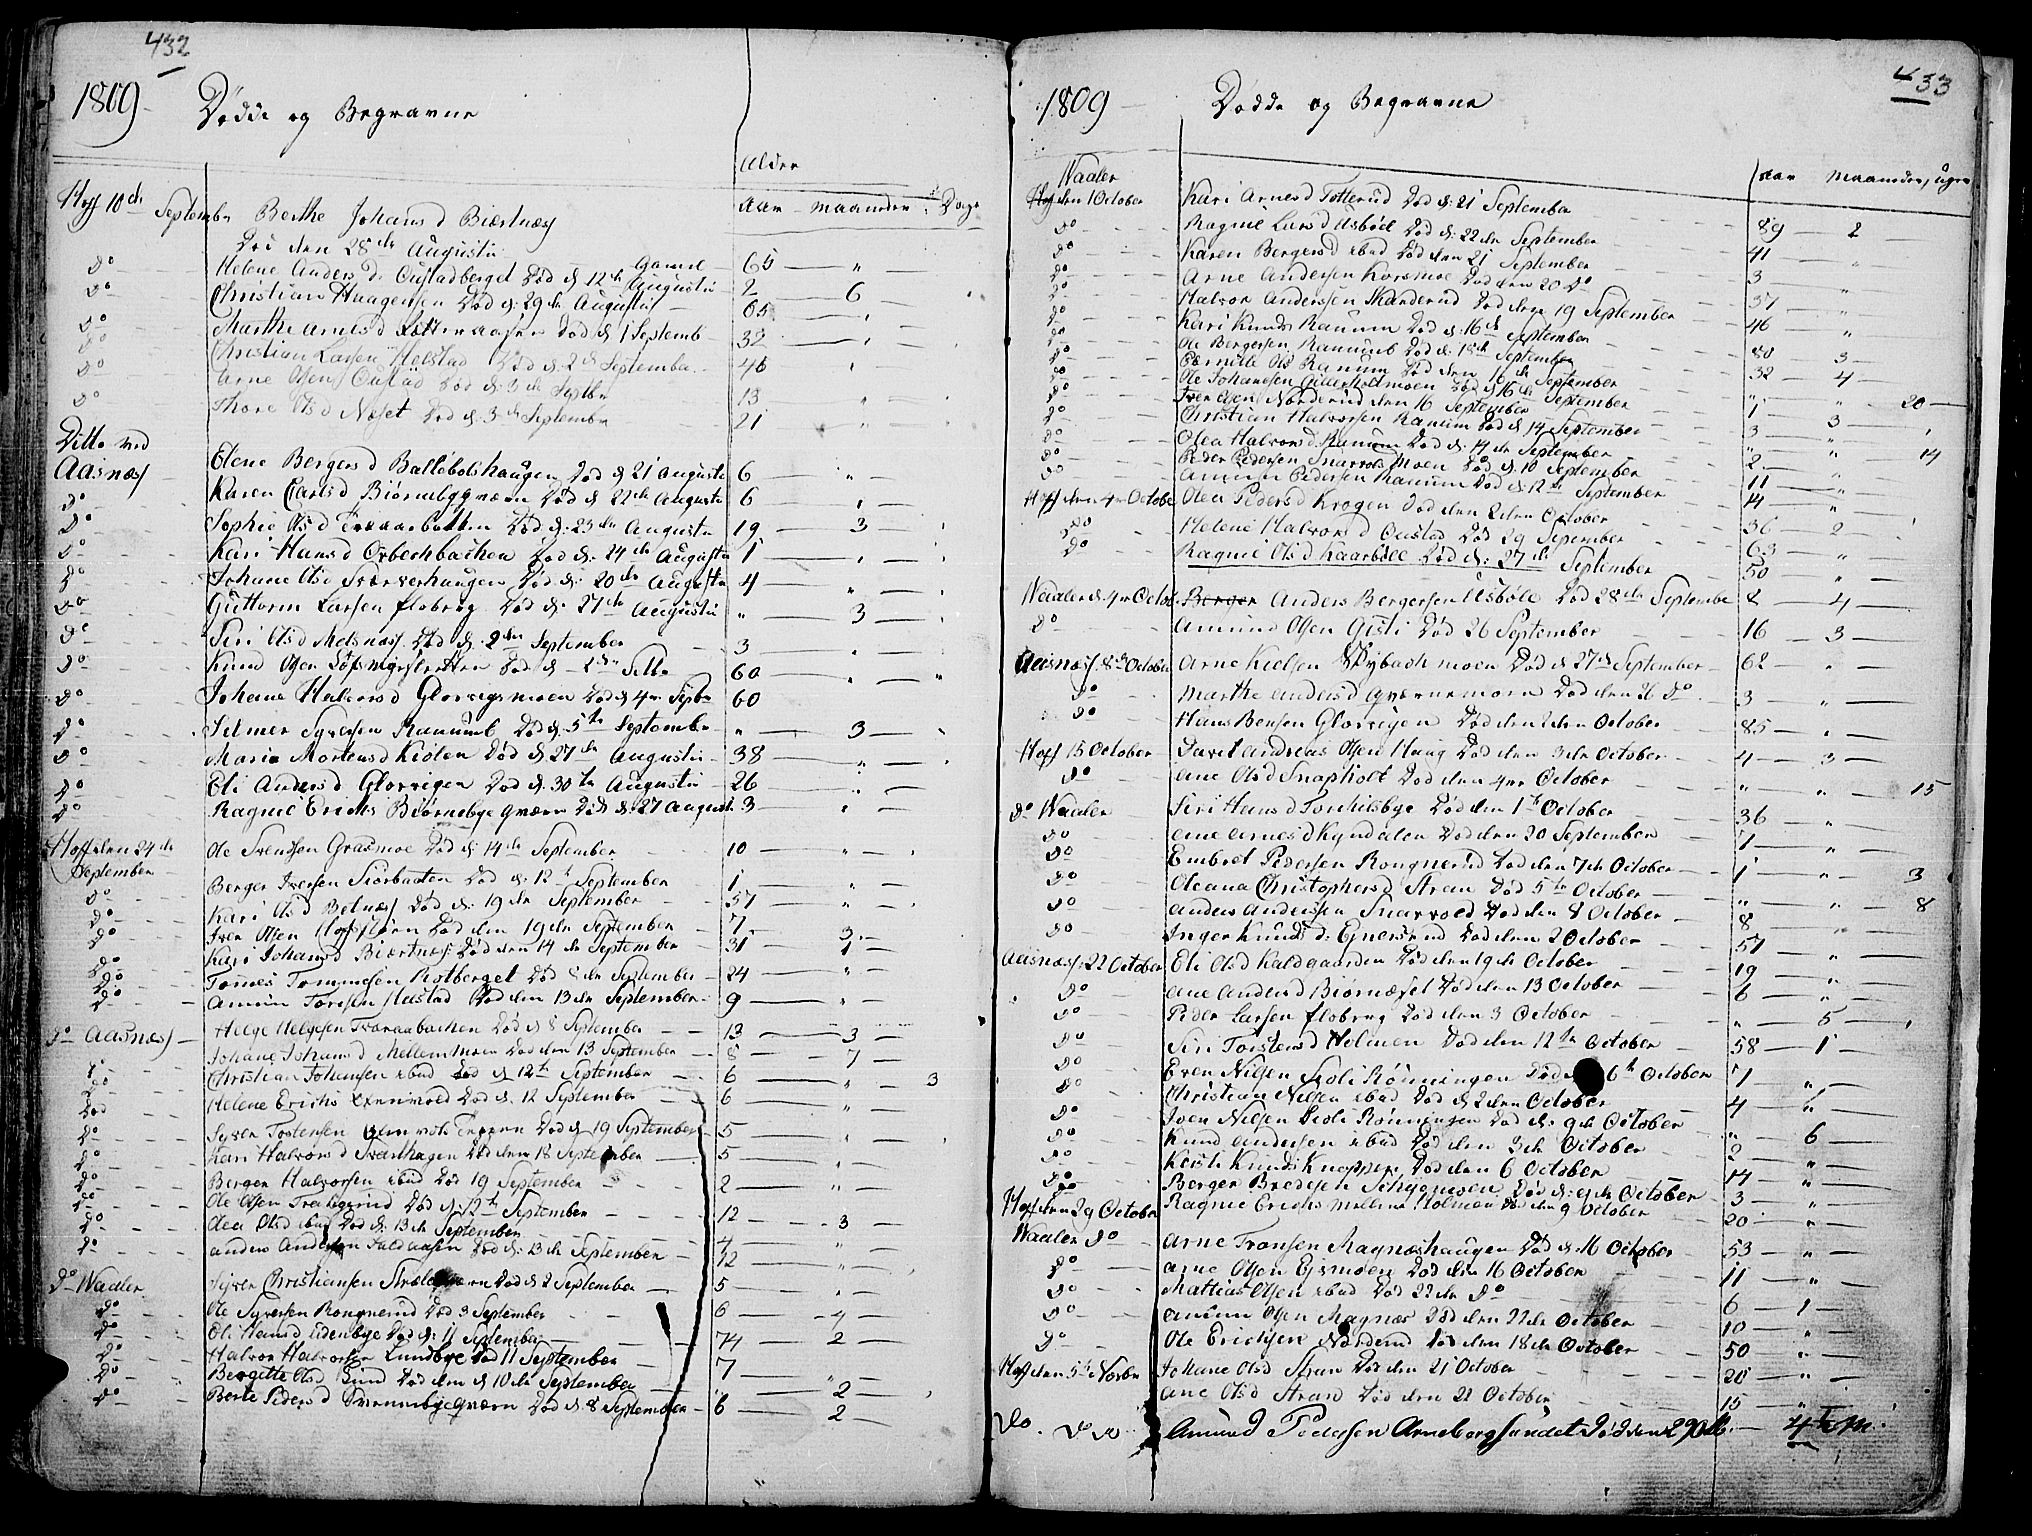 432
1809
Dødde og Begravne
Alder
Aar Maaneder Dage
Hoff 10de September Berthe Johansd Biertnæs
Død den 28de Augusti Gaml 65 "
do Helene Andersd. Gustadberget Død d. 12te Augusti 2 6
do Christian Haagensen Død d: 29de Augusti 65
do Marthe Arnesd Død d. 1 Septemb 32
do Christian Larsen Helstad Død d. 2de September 46
do Arne Olsen Gustad Død d: 3de Septbr 13
do Thore Olsd Næset Død d. 3de September 21
Ditto ved
Aasnæs Elene Bergersd Ballebolshaugen Død d 21 Augusti 6
do Karen Carlsd Biørnebyqværn Død d 22de Augusti 6
do Sophie Olsd Død d: 23de Augusti 19 3
do Kari Hansd Orbechbachen Død d: 24de Augusti 1
do Johane Olsd Sværverhaugen Død d: 20de Augusti 4
do Guttorm Larsen flobrog Død d: 27de Augusti " 3
do Siri Olsd Melsnæs Død d. 2den September 3
do Knud Olsen Død d 2den Sptbr 60
do Johane Halvorsd Glorvigsmoen Død d 4de Septbr 60
do Selmer Syversen Ranumb Død d. 5te September " 3
do Marie Mortensd Kiølen Død d 27de Augusti 38
do Eli Andersd Glorvigen Død d. 30te Augusti 26
do Ragnil Erichs Biørnebye qværn Død d: 27 August 3
Hoff den 24de Ole Svendsen Grasmoe Død d: 14de September 10
September
Berger Iversen Siørbaaten Død d: 12te September 1
do Kari Olsd Belnæs Død d: 19de September 57
do Iver Olsen Hof Død den 19de September 7 3
do Kari Johansd Biertnæs: Død den 14de September 31 1
do Tomes Tommesen Rotberget Død 8de September 24
do Amun Toresen Hastad Død den 13de September 9
do Aasnæs Helge Helgesen Traraabachen Død d 8 September 13 3
Johane Johansd Mellemmoen Død den 13 September 8 7
do Christian Johansen ibid Død d 12te September 6 " 3
do Helene Erichs Død d. 12 September 6
do Syver Tostensen Død d 19 September 5
do Kari Halvorsd Svenhagen Død den 18 September 5
do Berger Halvorsen ibid Død 19 September 2
do Ole Olsen Død d: 12te September 12 3
do Olea Olsd ibid Død d: 13de September 4
do Anders Andersen Død d: 13de September 12
do Waaler Syver Christiansen Død d 2 September 5
do Ole Syversen Rongnerud Død 3 September 6 4
do Eli Hansd Udenbye Død d: 11 September 74 2
do Halvor Halvorsen Lundbye Død 11 September 7
do Bergitte Olsd Lund Død den d 10de September " 2
do Berte Pedersd Svennebye qværn Død d 8 September 6 2
433
1809
Dødde og Begravne
Aar Maaneder, Uger
Waaler
Hof den 1 October Kari Arnesd Totterud Død d: 21 September 89 2
do Ragnil Larsd Usbøl Død d: 22de September 41
do Karen Bergersd ibid Død den 21 September 3
do Arne Andersen Korsmoe Død den 20 do 37
do Halvor Andersen Skarderud Død den 19 September 46
do Kari Knuds Ranum Død d: 16de September 80 3
do Ole Bergersen Ranumb Død d: 18de September 32 4
do Pernille Ols Ranum Død den 19de September " " 20
do Ole Johansen Gillerholtmoen Død d 16de September 1 3
do Iver Nordrud den 16 September 3
do Christian Halvorsen Ranum Død d 14 September " " 14
do Olea Halvorsd Ranum Død d. 14de September 2
do Peder Pedersen Snarvols Moen Død d: 10 September 11
do Amun Pedersen Ranum Død d 12te September 14
Hoff den 4de October Olea Pedersd Krogen Død den 2den October 36 2
do Helene Halvorsd Gustad Død 29 September 63
do Ragnil Olsd Kaarbøll Død d: 27de September 50
Waaler d. 4de Octob. Berger Anders Bergersen Usbøle Død 28de September 2 4
do Amund Olsen Gisti Død 26 September 16 3
Aasnæs 8de October Arne Kielsen Nybachmoen Død d 27de September 62
do Marthe Andersd qværnemoen Død den 26 do 3
do Hans Bensen Glorvigen Død den 2den October 85
Hoff 15 October David Andreas Olsen Haug Død den 3de October 4 3
do Ane Olsd Snapholt Død den 4de October " " 15
do Waaler Siri Hansd Tonhilsbye Død den 1te October 36
do Ane Arnesd Kyndelen Død den 20 September 1
do Embret Pedersen Rongnerud Død den 7de October 1 " 3
do Oleana Christophersd Strau Død 5te October " " 8
do Anders Andersen Snarvold Død den 8 October 8
do Inger Knuds d: Ejnersrud Død den 2 October 57
Aasnæs 22 October Eli Olsd Kaldgaarden Død den 19de October 19
do Ane Andersd Biørnæset Død den 13 October 6
do Peder Larsen flobrug Død den 3 October " 5
do Siri Torstensd Holmen Død den 12te October 58 1
do Even Nilsen Scoli Rønningen Død d 6te October 1
do Christian Nilsen ibid Død d 2den October 4
do Iven Nilsen Scoli Rønningen Død d. 9de October " 6
do Knud Andersen ibid Død den 3de October 2
do Kersti Knuds Knappen Død den 6 October 14
do Berger Bredesen Død d: 9de October 3
do Ragnil Erichs Mellem Holmen Død den 9 October 20
Hof den 29 October
Waaler do Arne Tronsen Magnæshaugen Død d: 16 October 53
do Arne Olsen Ejsmoen Død den 16 October 11
do Mathias Olsen ibid Død 22de do 6 1
do Amun Olsen Magnæs Død den 22de October 10
do Ole Erichsen Norderud Død den 18de October 50
Hof den 5te Novbr Johane Olsd Strau Død den 21 October 28
Ane Olsd Strand Død den 21 October 15
do. do Amund Pedersen Arnebergsundet Død den 29 Oct. 4 M.